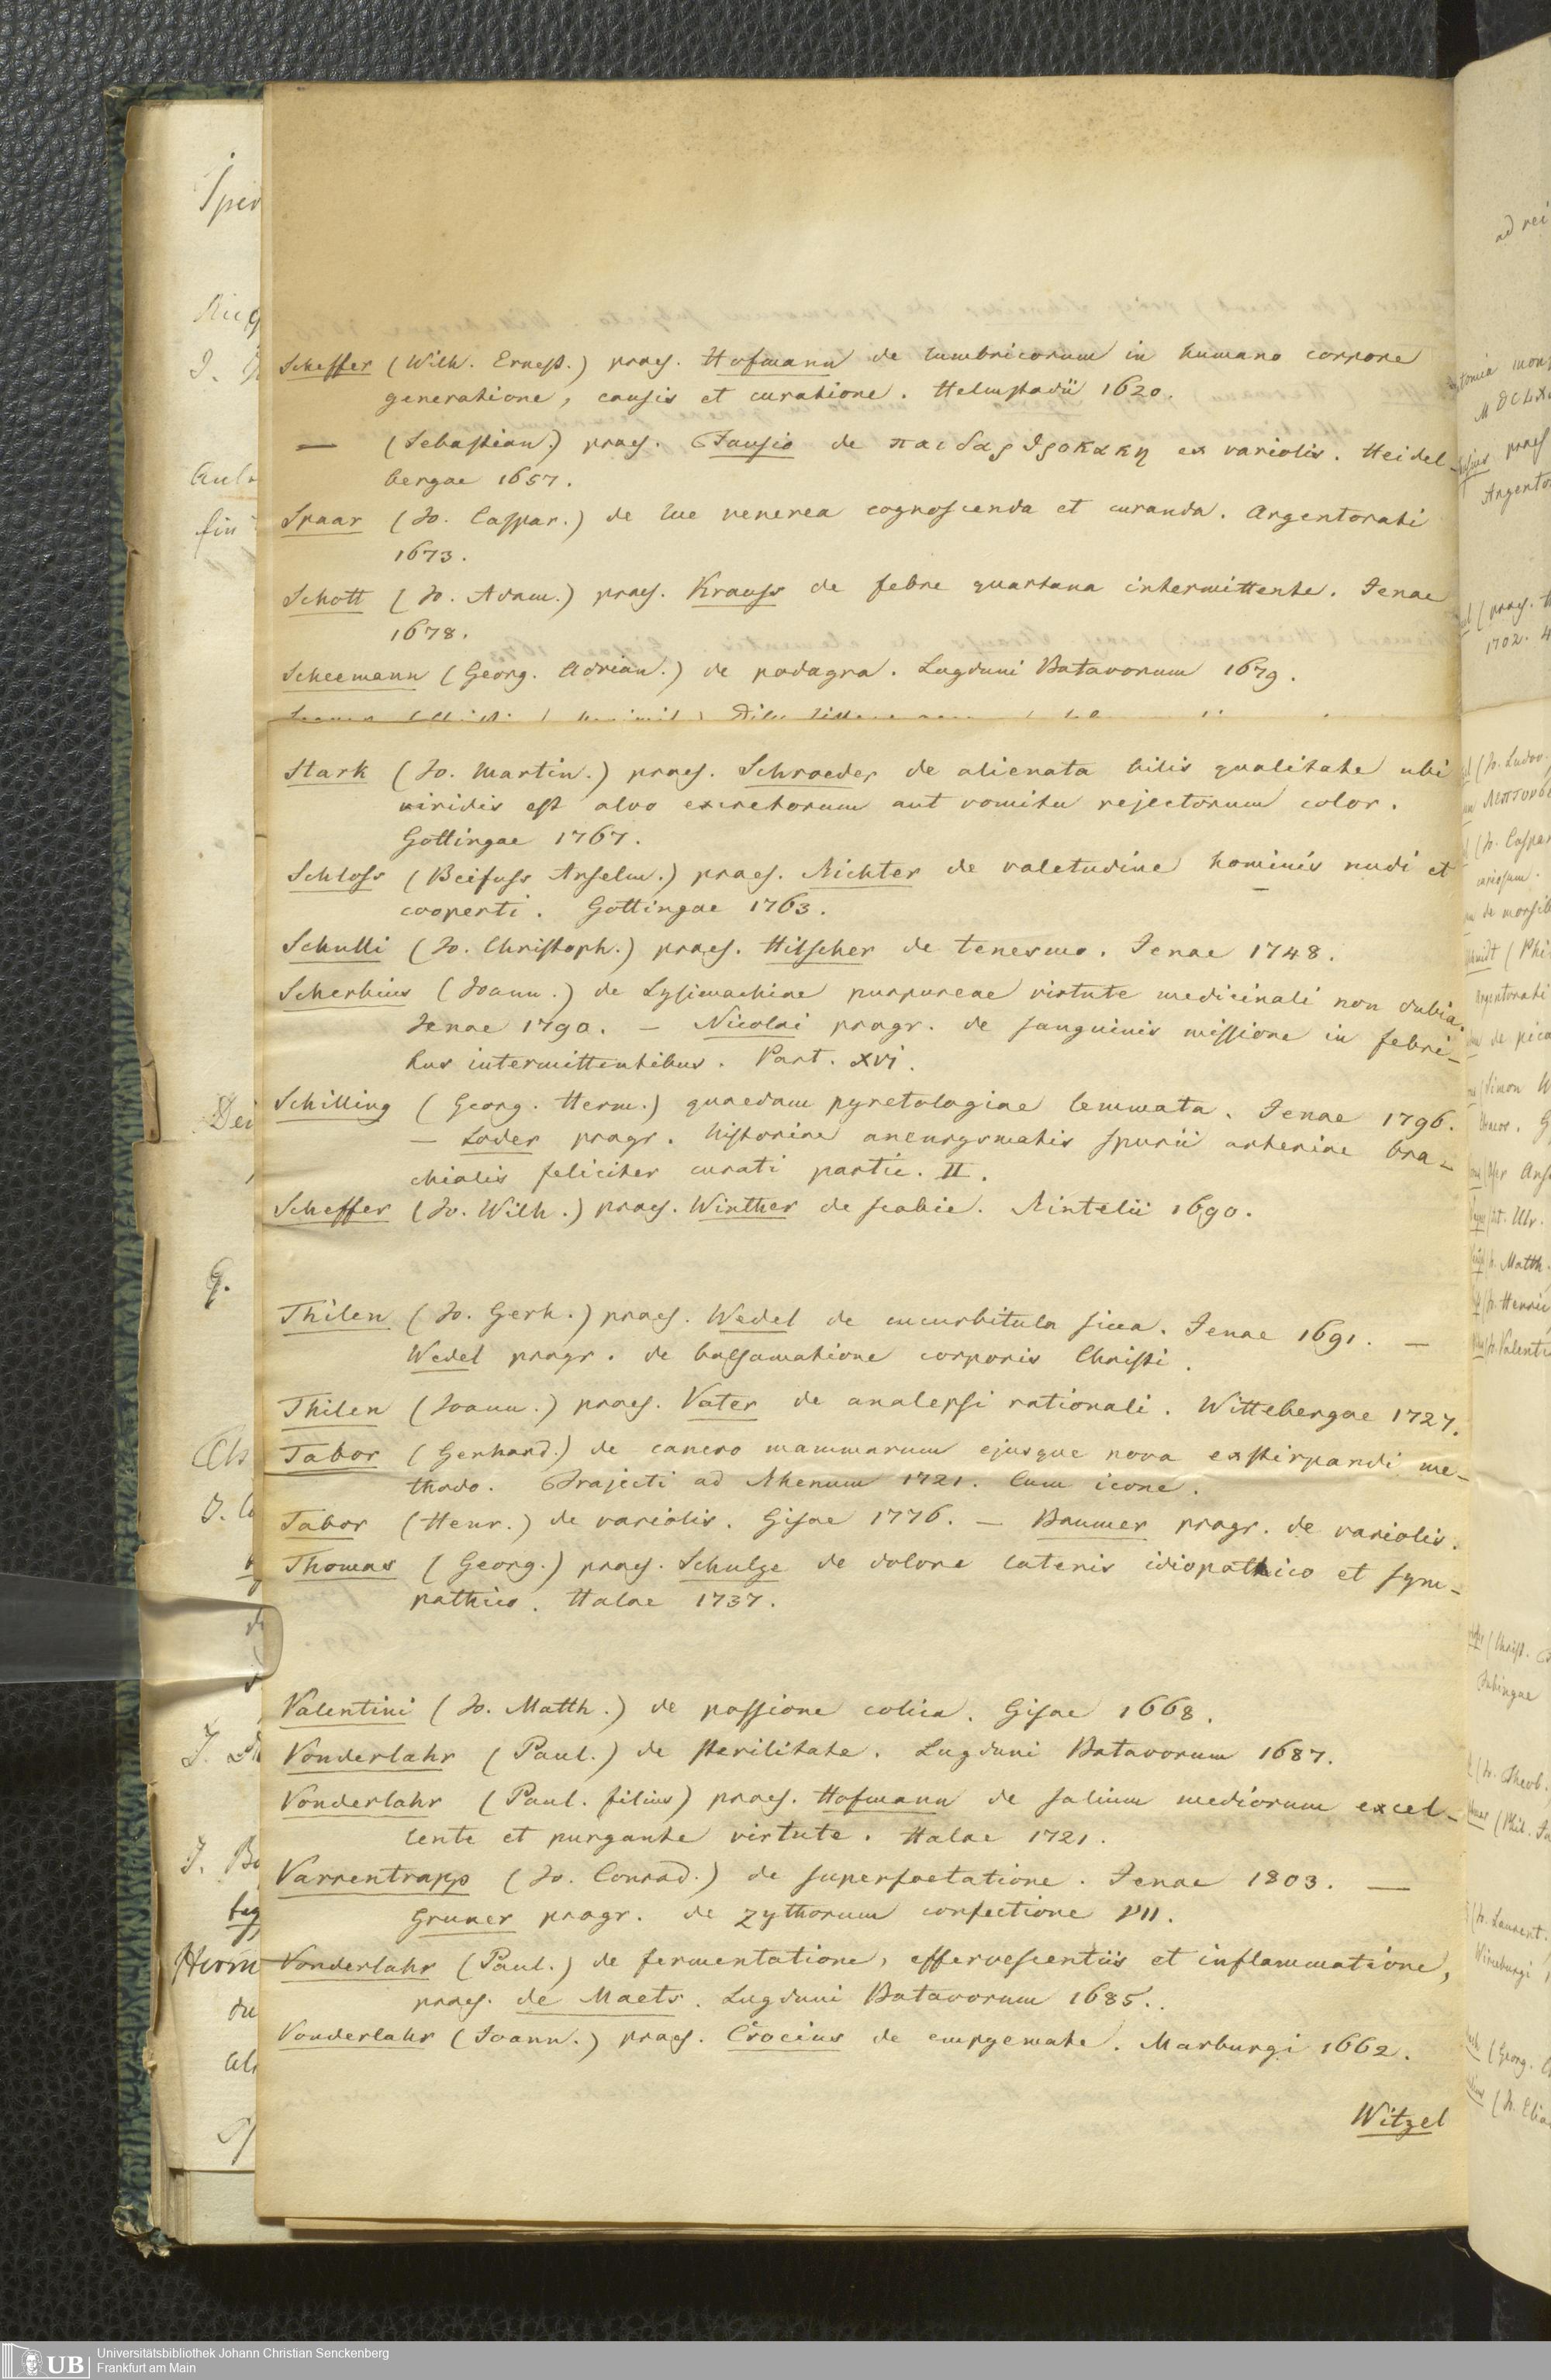 Scheffer (Wilh. Ernest.) praes. Hofmann de lumbricorum in humano corpore
generatione, causis et curatione. Helmstadii 1620.
— (Sebastian.) praes. Fausio de παιδαρθροκακη ex variolis. Heidel-
bergae 1657.
Spaar (Jo. Caspar.) de lue venerea cognoscenda et curanda. Argentorati
1673.
Schott (Jo. Adam.) praes. Krauss de febre quartana intermittente. Jenae
1678.
Scheemann (Georg. Adrian.) de podagra. Lugduni Batavorum 1679.
Stark (Jo. Martin.) praes. Schroeder de alienata bilis qualitate ubi
viridis est alvo excretorum aut vomitu rejectorum color.
Gottingae 1767.
Schloss (Beifuss Anselm.) praes. Richter de valetudine hominis nudi et
cooperti. Gottingae 1763.
Schulli (Jo. Christoph.) praes. Hilscher de tenesmo. Jenae 1748.
Scherbius (Joann.) de Lysimachiae purpureae virtute medicinali non dubia.
Jenae 1790. — Nicolai progr. de sanguinis missione in febri-
bus intermittentibus. Part. XVI.
Schilling (Georg. Herm.) quaedam pyretologiae lemmata. Jenae 1796.
— Loder progr. historiae aneurysmatis spurii arteriae bra-
chialis feliciter curati partic. II.
Scheffer (Jo. Wilh.) praes. Winther de scabie. Rintelii 1690.
Thilen (Jo. Gerh.) praes. Wedel de cucurbitula sicca. Jenae 1691. —
Wedel progr. de balsamatione corporis Christi.
Thilen (Joann.) praes. Vater de analepsi rationali. Wittebergae 1727.
Tabor (Gerhard.) de cancro mammarum ejusque nova exstirpandi me-
thodo. Trajecti ad Rhenum 1721. Cum icone.
Tabor (Henr.) de variolis. Gisae 1776. — Baumer progr. de variolis.
Thomas (Georg.) praes. Schulze de dolore lateris idiopathico et sym-
pathico. Halae 1737.
Valentini (Jo. Matth.) de passione colica. Gisae 1668.
Vonderlahr (Paul.) de sterilitate. Lugduni Batavorum 1687.
Vonderlahr (Paul. filius) praes. Hofmann de salium mediorum excel-
lente et purgante virtute. Halae 1721.
Varrentrapp (Jo. Conrad.) de superfoetatione. Jenae 1803. —
Gruner progr. de zythorum confectione VII.
Vonderlahr (Paul.) de fermentatione, effervescentiis et inflammatione,
praes. de Maets. Lugduni Batavorum 1685.
Vonderlahr (Joann.) praes. Crocius de empyemate. Marburgi 1662.
Witzel
UB
Universitätsbibliothek Johann Christian Senckenberg
Frankfurt am Main